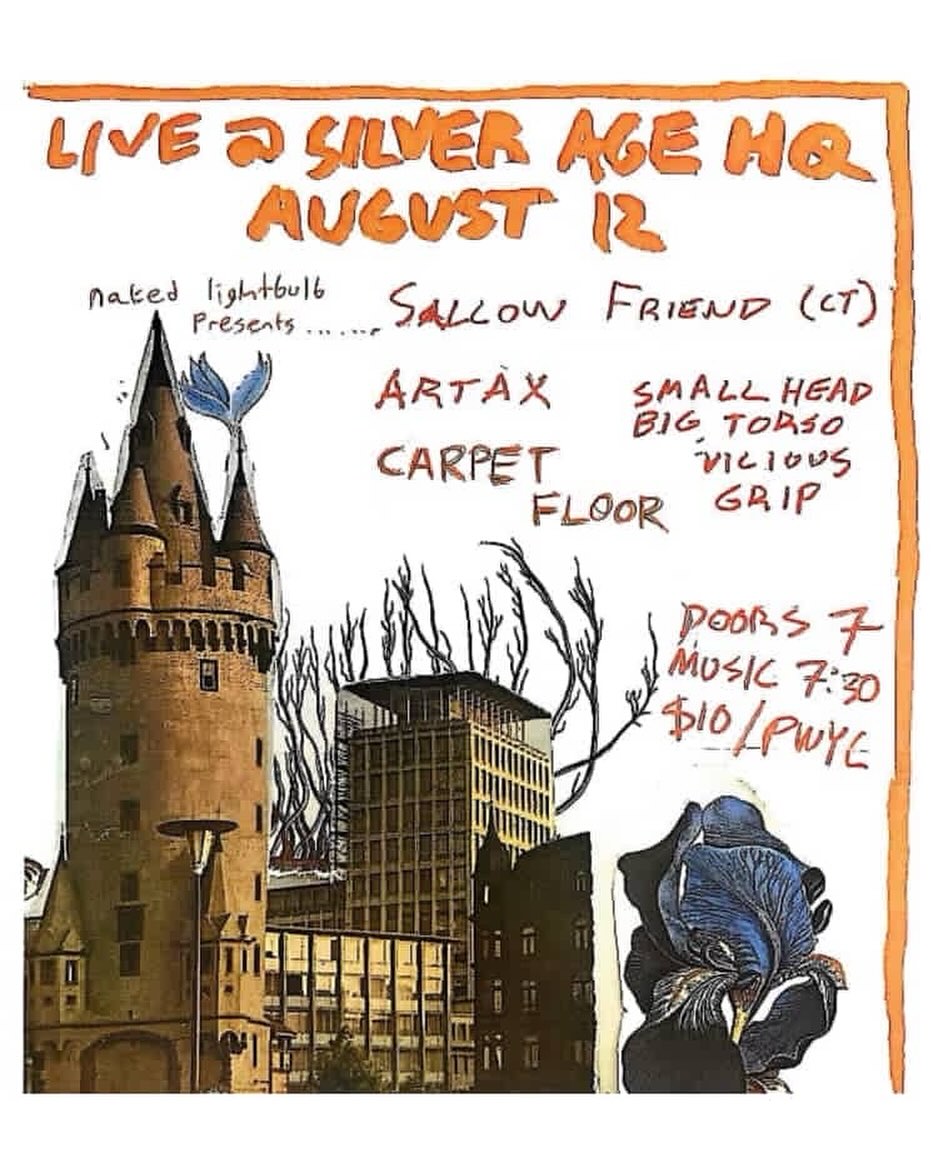 LIVE @ SILVER AGE HQ
AUGUST 12
naked lightbulb
Presents.......
SALLOW FRIEND (CT)
ARTAX
CARPET
FLOOR
SMALL HEAD
BIG TORSO
VICIOUS
GRIP
DOORS 7
MUSIC 7:30
$10/PWYC